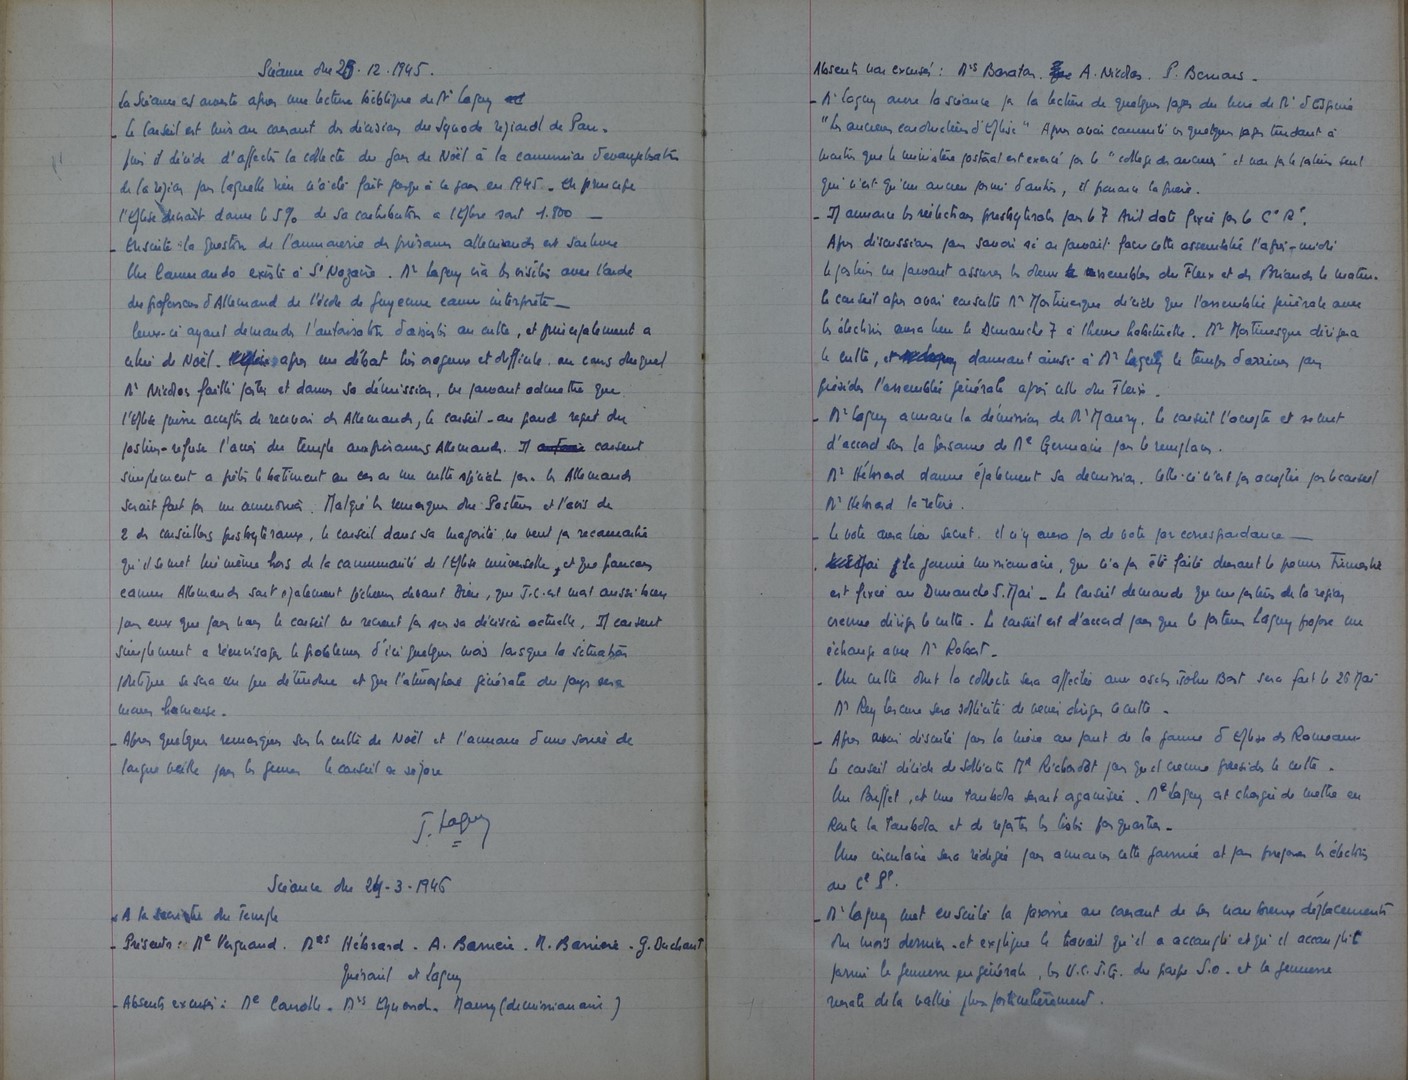 Séance du 23.12.1945.
La séance est ouverte après une lecture biblique de Mr Laguy
- Le Conseil est mis au courant des décisions du Synode régional de Pau.
puis il décide d'affecter la collecte du jour de Noël à la commission d'évangélisation
de la région pour laquelle rien n'a été fait jusqu'à ce jour en 1945. En principe
l'Eglise devrait donner le 5% de sa contribution à l'Eglise soit 1.800 —
- Ensuite la question de l'aumônerie des prisonniers allemands est soulevée
Un Commando existe à St Nazaire. Mr Laguy ira les visiter avec l'aide
du professeur d'Allemand de l'école de Guyenne comme interprète —
Ceux-ci ayant demandé l'autorisation d'assister au culte, et principalement à
celui de Noël. après un débat très orageux et difficile au cours duquel
Mr Nicolas faillit partir et donner sa démission, ne pouvant admettre que
l'Eglise puisse accepter de recevoir des Allemands, le conseil - au grand regret du
pasteur - refuse l'accès du temple aux prisonniers Allemands. Il consent
simplement à prêter le bâtiment au cas où un culte spécial pour les Allemands
serait fait par un aumônier. Malgré les remarques du Pasteur et l'avis de
2 des conseillers presbytéraux, le conseil dans sa majorité ne veut pas reconnaître
qu'il se met lui même hors de la communauté de l'Eglise universelle, et que français
comme Allemands sont également pécheurs devant Dieu, que J.C. est mort aussi bien
pour eux que pour nous le conseil ne revient pas sur sa décision actuelle. Il consent
simplement à réenvisager le problème d'ici quelques mois lorsque la situation
politique se sera un peu détendue et que l'atmosphère générale du pays sera
moins haineuse.
- Après quelques remarques sur le culte de Noël et l'annonce d'une soirée de
longue veille pour les jeunes le conseil se sépare
J. Laguy
Séance du 24-3-1946
- A la sacristie du Temple
- Présents : Me Vergnaud. Mrs Hébrard. A. Barrière. N. Barrière. G. Duchant
Guérard et Laguy
- Absents excusés : Me Carrolle. Mrs Eynard. Maury (démissionnaire)
Absents non excusés : Mrs Baraton. A. Nicolas. P. Bernard.
- Mr Laguy ouvre la séance par la lecture de quelques pages du livre de Mr d'Espine
"Les anciens conducteurs d'Eglise" Après avoir commenté ces quelques pages tendant à
montrer que le ministère pastoral est exercé par le "collège des anciens" et non par le pasteur seul
qui n'est qu'un ancien parmi d'autres, il prononce la prière.
- Il annonce les réélections presbytérales pour le 7 Avril date fixée par le Cl Rl.
Après discussion pour savoir si on pouvait fixer cette assemblée l'après-midi
le pasteur ne pouvant assurer les deux assemblées du Fleix et des Briands le matin.
le conseil après avoir consulté Mr Martinesque décide que l'assemblée générale avec
les élections aura lieu le Dimanche 7 à l'heure habituelle. Mr Martinesque dirigera
le culte, et donnant ainsi à Mr Laguy le temps d'arriver pour
présider l'assemblée générale après celle du Fleix.
- Mr Laguy annonce la démission de Mr Maury. Le conseil l'accepte et se met
d'accord sur la personne de Me Germaine pour le remplacer.
Mr Hébrard donne également sa démission. Celle-ci n'est pas acceptée par le conseil
Mr Hébrard la retire.
- Le vote aura lieu secret. il n'y aura pas de vote par correspondance —
. La journée missionnaire, qui n'a pas été faite durant le premier Trimestre
est fixée au Dimanche 5. Mai - Le Conseil demande qu'un pasteur de la région
vienne diriger le culte. Le conseil est d'accord pour que le pasteur Laguy propose un
échange avec Mr Robert.
- Un culte dont la collecte sera affectée aux asiles John Bost sera fait le 26 Mai
Mr Rey Lescure sera sollicité de venir diriger le culte.
- Après avoir discuté pour la mise au point de la journée d'Eglise des Rameaux
Le conseil décide de solliciter Mr Richardot pour qu'il vienne présider le culte.
Un Buffet, et une tombola seront organisés. Me Laguy est chargée de mettre en
Route la Tombola et de répartir les listes par quartier.
Une circulaire sera rédigée pour annoncer cette journée et pour préparer les élections
au Cl Pl.
- Mr Laguy met ensuite la paroisse au courant de ses nombreux déplacements
du mois dernier - et explique le travail qu'il a accompli et qu'il accomplit
parmi la jeunesse en générale, les U.C.J.G. du groupe S.O. et la jeunesse
rurale de la vallée plus particulièrement.